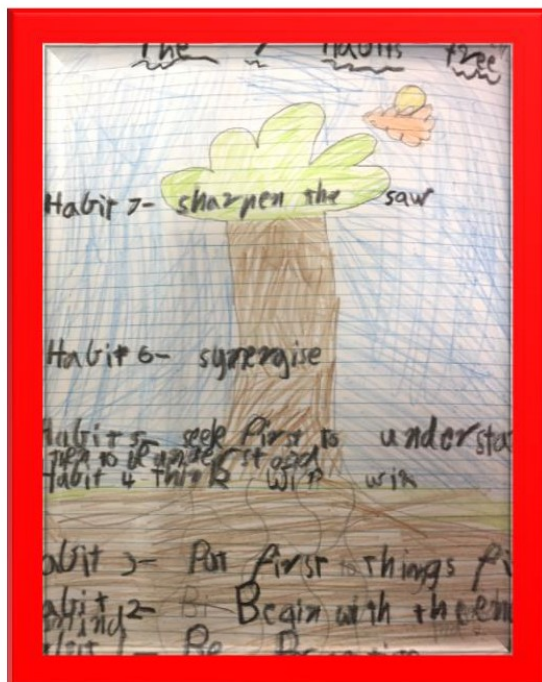 The 7 Habits tree
Habit 7- sharpen the saw
Habit 6- synergise
Habit 5- seek first to understa
then to be understood
Habit 4 think win win
abit 3- Put first things fi
abit 2- Begin with the en
mind
abit 1- Be Proactive